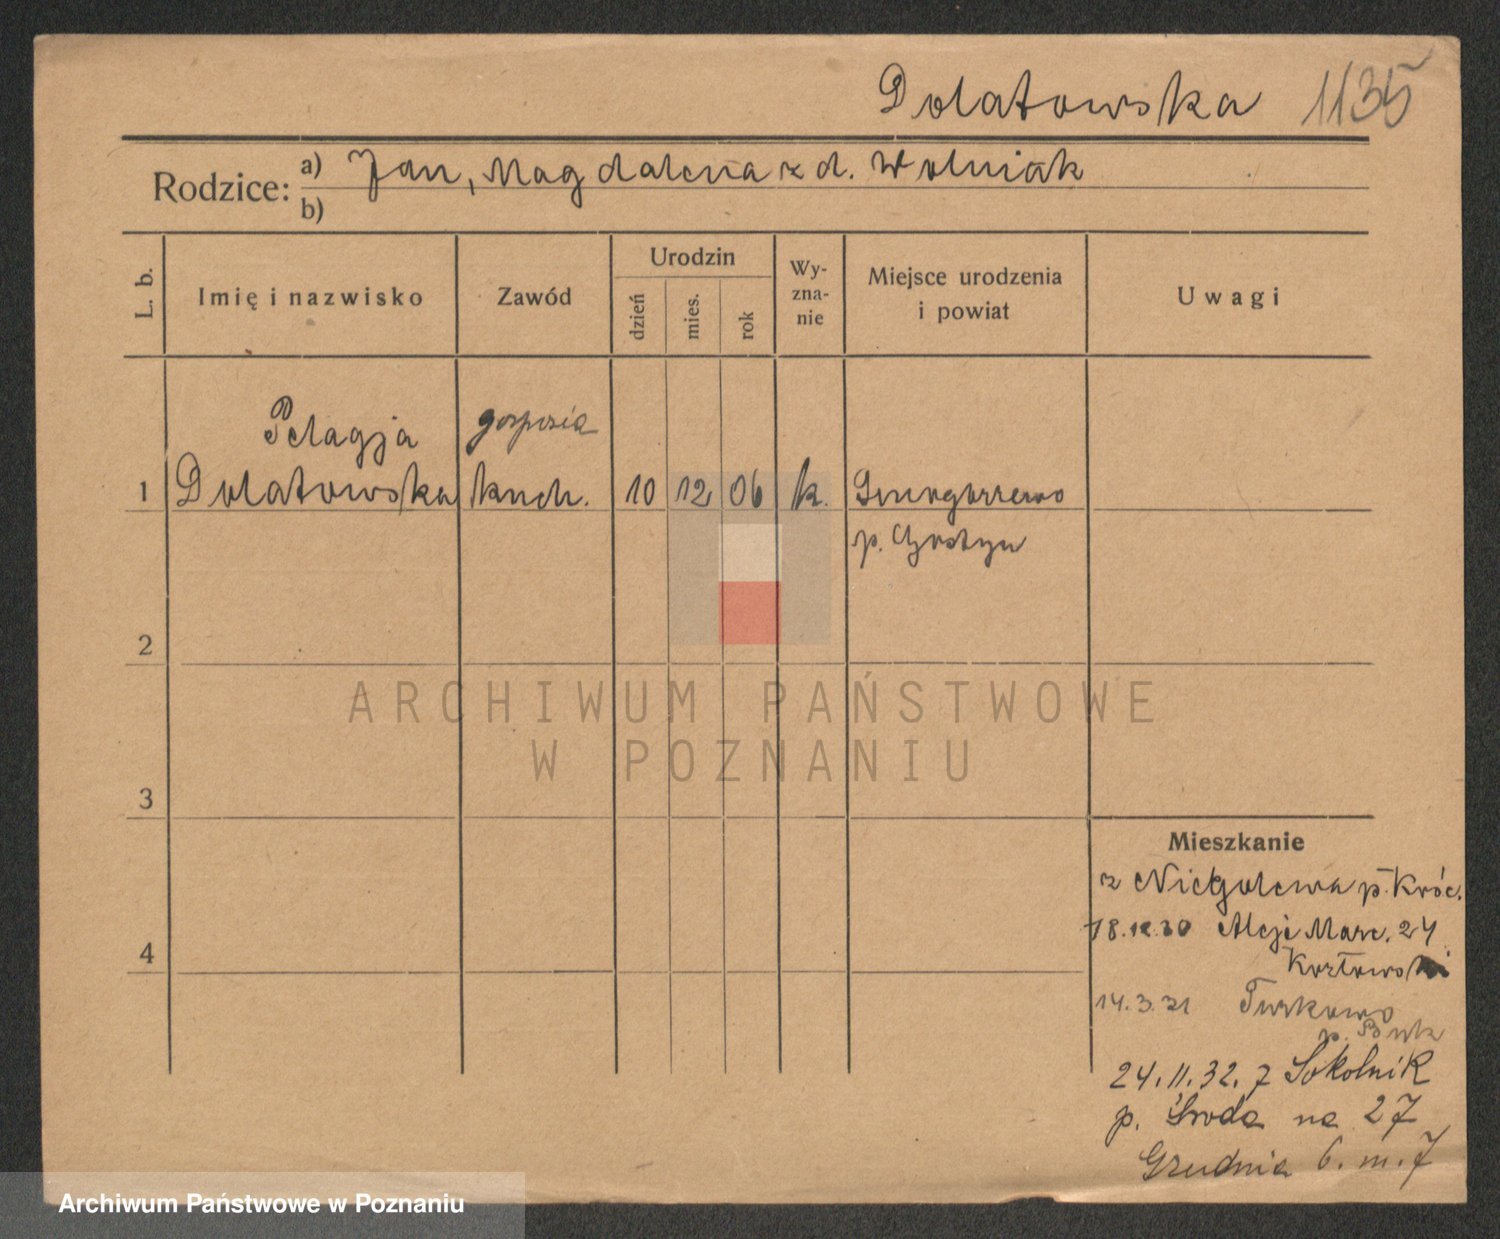 Dolatowska 1135
Rodzice: a) Jan, Magdalena z d. Wolniak
b)
L. b.
Imię i nazwisko
Zawód
Urodzin
dzień
mies.
rok
Wy-
zna-
nie
Miejsce urodzenia
i powiat
Uwagi
Pelagja gosposia
1 Dolatowska kuch. 10 12 06 k.
p. Gostyn
2
3
4
ARCHIWUM PAŃSTWOWE
W POZNANIU
Mieszkanie
z Niegolewa p.
18.12.30 Aleje Marc. 24
Kozłowski
14.3.31 Turkowo
p. Buk
24.11.32. z Sokolnik
p. Środa na 27
Grudnia 6. m. 7
Archiwum Państwowe w Poznaniu